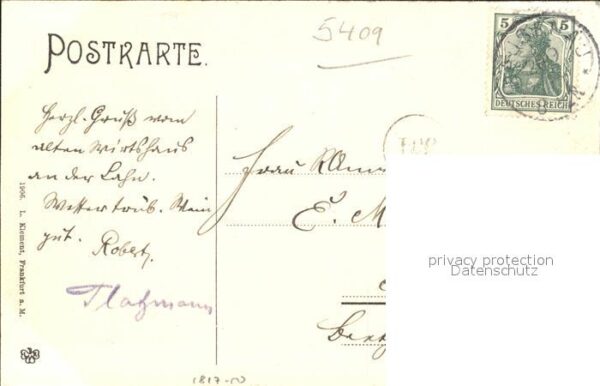 5409
POSTKARTE.
5 5
DEUTSCHES REICH
Herzl. Gruß vom
alten Wirtshaus
an der Lahn.
Wetter trüb. Wein
gut.
Robert.
Frau
E. M
1906. L. Klement, Frankfurt a. M.
privacy protection
Datenschutz